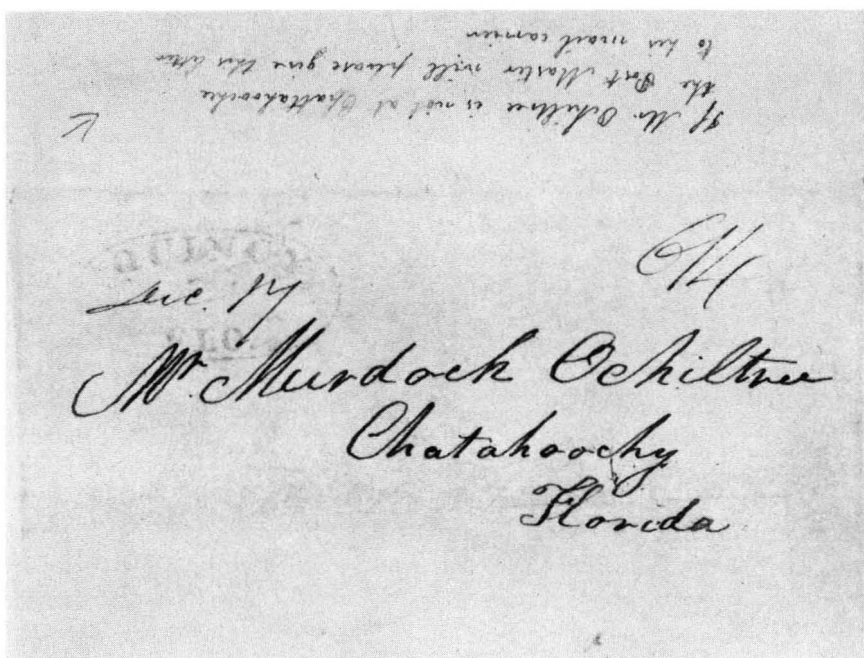 If Mr. Ochiltree is not at Chattahoochee
the Post Master will please give this letter
to his mail carrier
QUINCY
FLO.
Dec. 17
Mr. Murdock Ochiltree
Chatahoochy
Florida